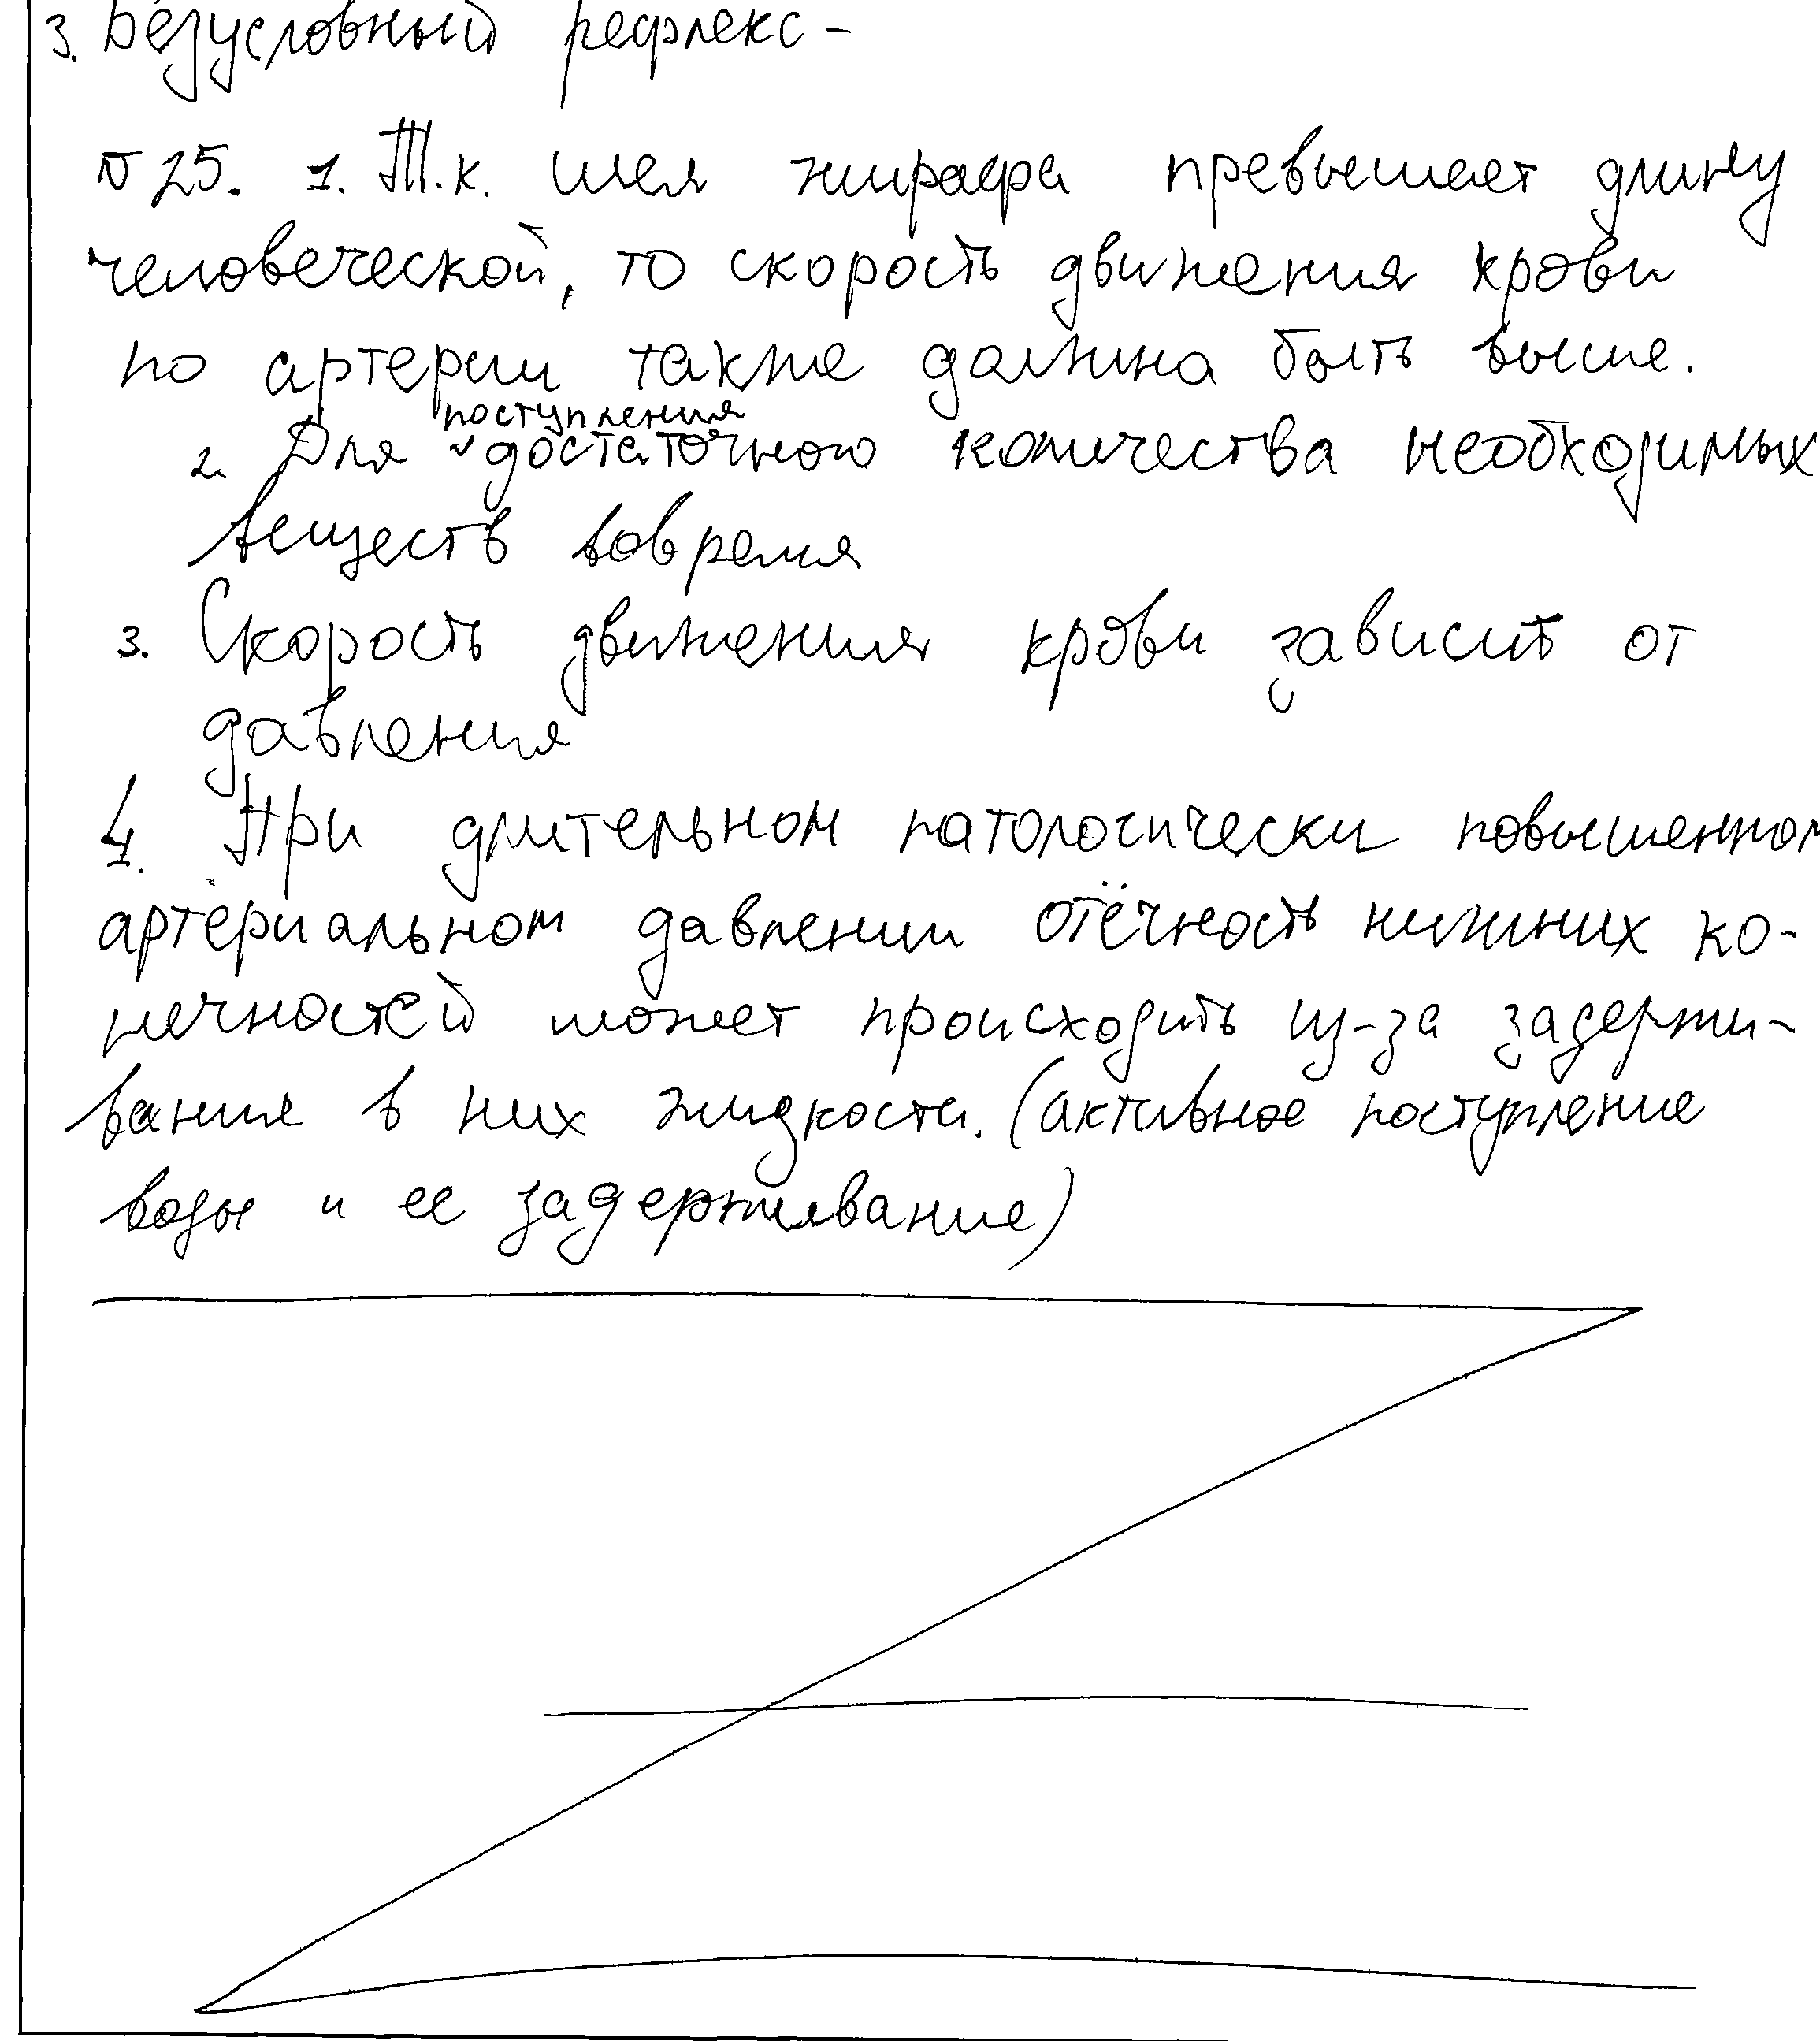 3. Безусловный рефлекс -
№ 25. 1. Т.к. шея жирафа превышает длину
человеческой, то скорость движения крови
по артерии также должна быть выше.
поступления
2. Для ˅ достаточного количества необходимых
веществ вовремя
3. Скорость движения крови зависит от
давления
4. При длительном патологически повышенном
артериальном давлении отёчность нижних ко-
нечностей может происходить из-за задержи-
вания в них жидкости. (активное поступление
воды и ее задерживание)